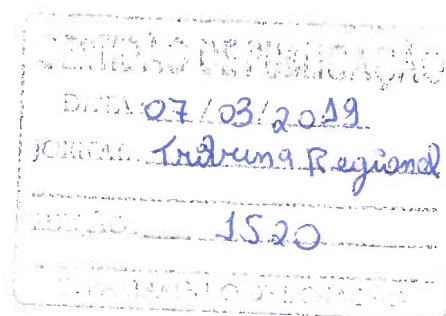 CERTIDÃO DE PUBLICAÇÃO
DATA 07/03/2019
JORNAL Tribuna Regional
EDIÇÃO 1520